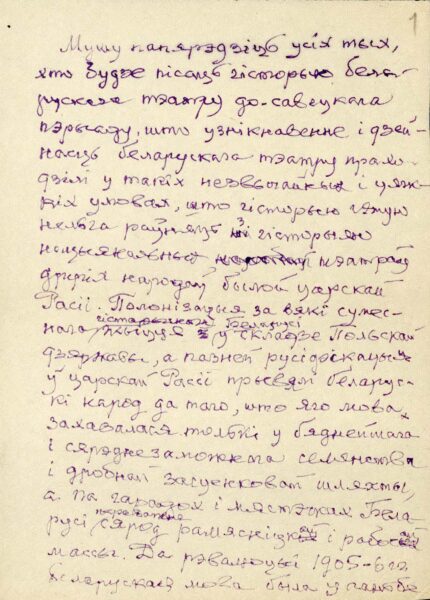 1
Мушу папярэдзіць усіх тых,
хто будзе пісаць гісторыю бела-
рускага тэатру до-савецкага
пэрыяду, што узнікнавенне і дзей-
насць беларускага тэатру прахо-
дзілі у такіх незвычайных і цяж-
кіх умовах, што гісторыю гэтую
нельга раўняць з гісторыяю
нацыянальных тэатраў
другіх народаў былой царскай
Расіі. Полонізацыя за вякі сумес-
нага гістарычнага жыцця Беларусі у складзе Польскай
дзяржавы, а пазней русіфікацыя
ў царскай Расіі прывялі беларус-
кі народ да того, што яго мова
захавалася толькі у беднейшага
і сярэднезаможнага селянства
і дробнай засценковай шляхты,
а па гарадох і мястэчках Бела-
русі пераважна сярод рамясніцкай і рабочай
массы. Да рэвалюцыі 1905-6 го
беларуская мова была у